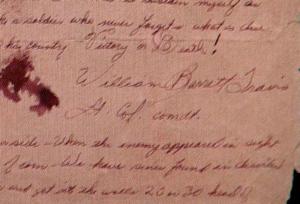 to sustain myself as
a soldier who never forgets what is due
his country Victory or Death!
William Barett Travis
Lt. Col. comdt.
side - When the enemy appeared in sight
of corn - We have since found in deserted
and got into the walls 20 or 30 head of